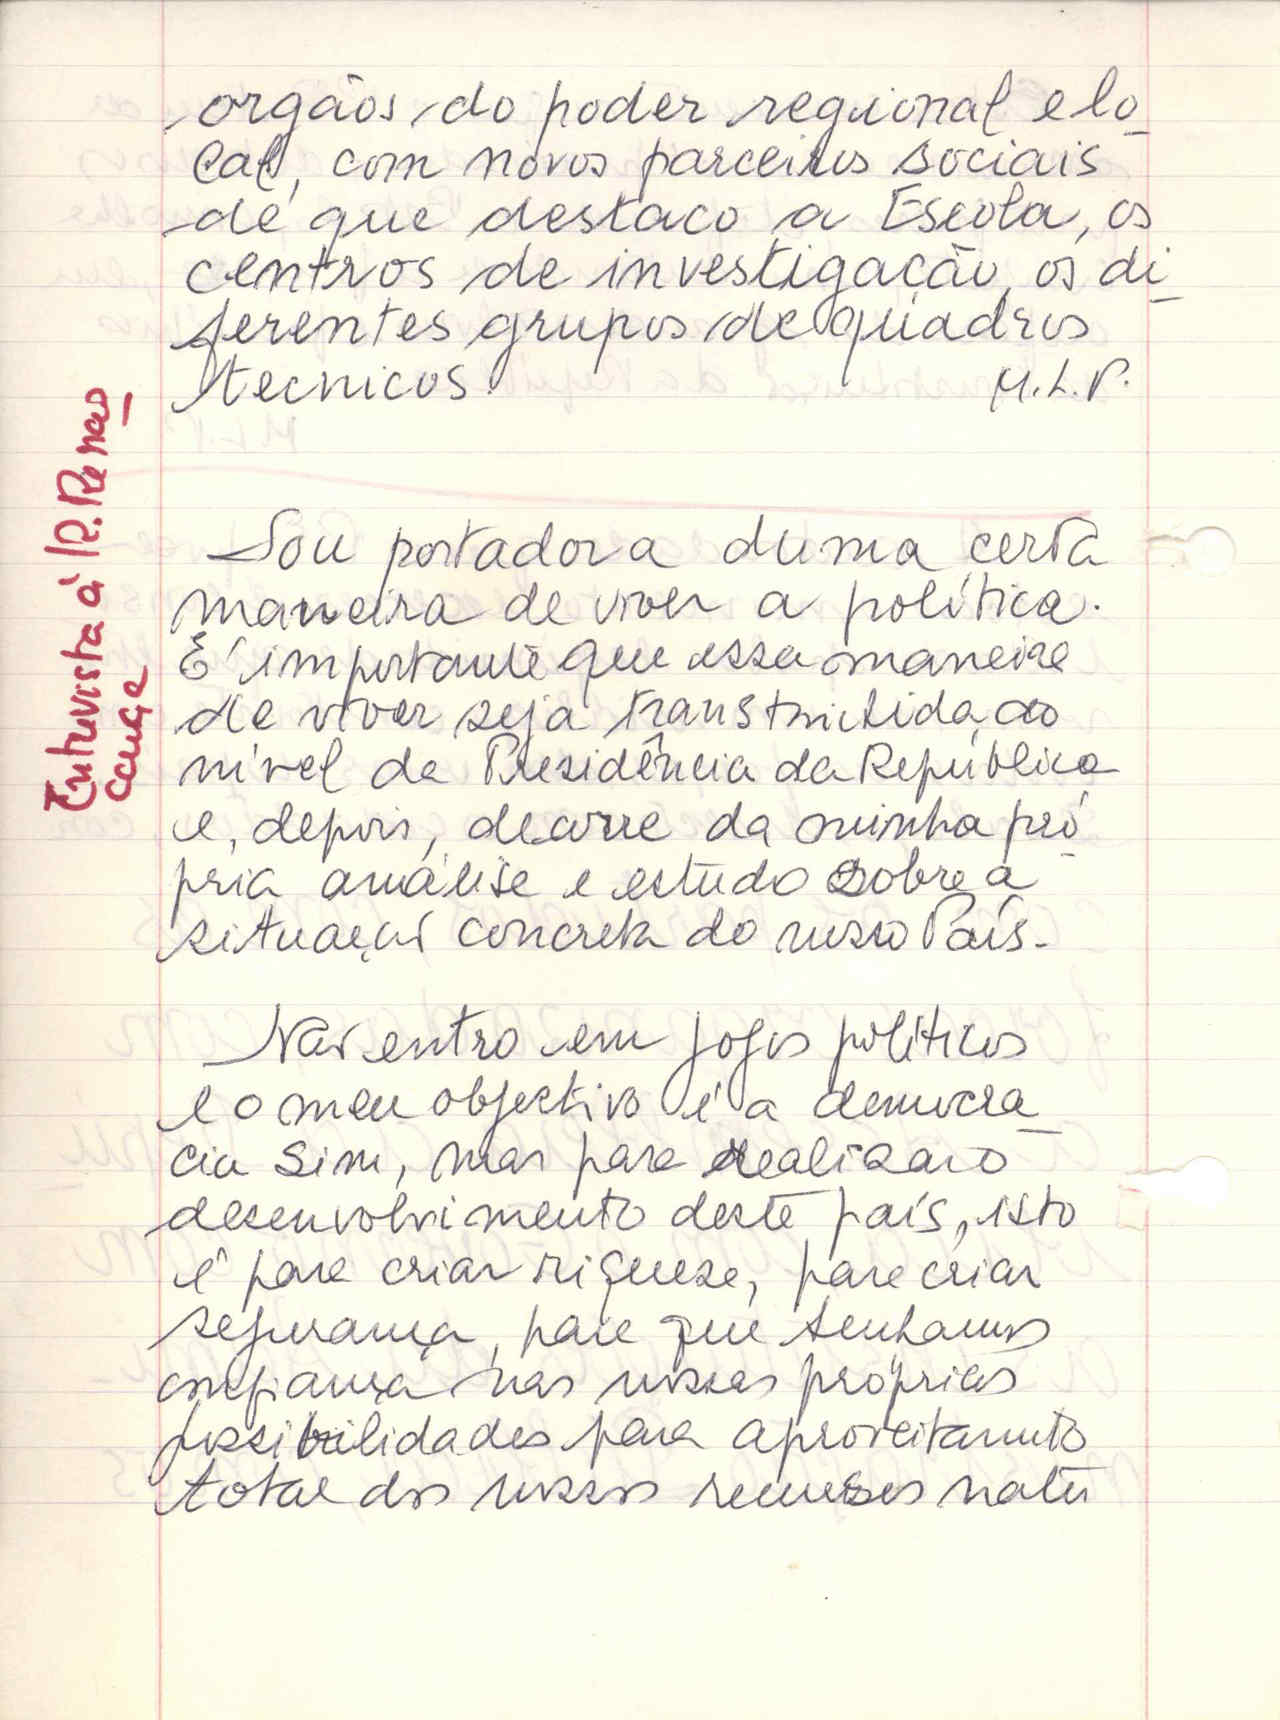 orgãos do poder regional e lo_
cal, com novos parceiros sociais
de que destaco a Escola, os
centros de investigação, os di_
ferentes grupos de quadros
tecnicos.
M.L.P.
Entrevista à R. Renas_
cença
Sou portadora duma certa
maneira de viver a política.
É importante que essa maneira
de viver seja transmitida ao
nível da Presidência da República
e, depois, decorre da minha pró_
pria análise e estudo sobre a
situação concreta do nosso País.
Não entro em jogos políticos
e o meu objectivo é a democra_
cia sim, mas para realizar o
desenvolvimento deste país, isto
é para criar riqueza, para criar
segurança, para que tenhamos
confiança nas nossas próprias
possibilidades para aproveitamento
total dos nossos recursos natu